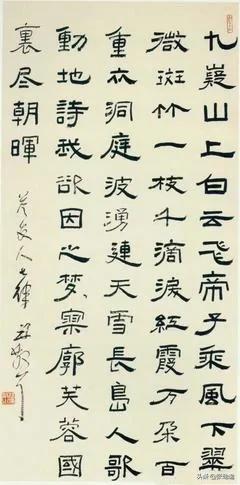 九嶷山上白云飞帝子乘風下翠
微斑竹一枝千滴淚紅霞万朵百
重衣洞庭波湧連天雪長島人歌
動地詩我欲因之夢寥廓芙蓉國
裏尽朝暉
答友人七律